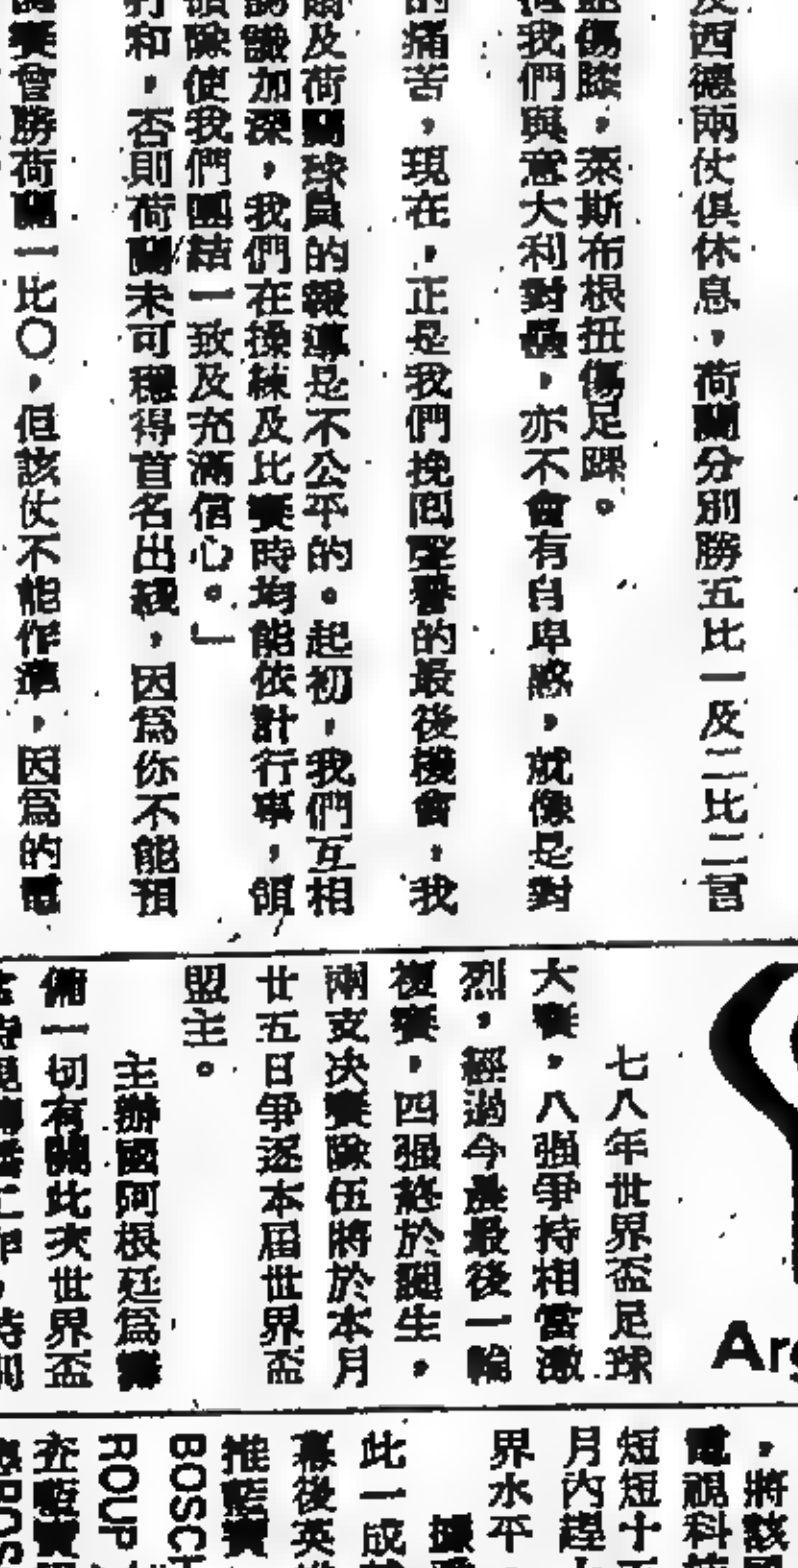 西德兩仗俱休息，荷蘭分別勝五比一及二比二言
傷膝，柰斯布根扭傷足踝。
我們與意大利對壘，亦不會有自卑感，就像是對
的痛苦，現在，正是我們挽回聲譽的最後機會，我
及荷蘭球員的報導是不公平的。起初，我們互相
加深，我們在操練及比賽時均能依計行事，領
使我們團結一致及充滿信心。」
打和，否則荷蘭未可穩得首名出綫，因為你不能預
賽會勝荷蘭一比〇，但該仗不能作準，因為的電
七八年世界盃足球
大賽，八強爭持相當激
烈，經過今晨最後一輪
複賽，四强終於誕生，
兩支決賽隊伍將於本月
廿五日爭逐本屆世界盃
盟主。
主辦國阿根廷為籌
備一切有關此次世界盃
Arg
，將該
電視科
短短十
月內趕
界水平
據
此一成
幕後英
推藍寶
BOSCH
ROUP
在藍寶